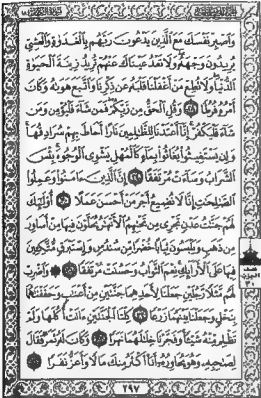 وَٱصْبِرْ نَفْسَكَ مَعَ ٱلَّذِينَ يَدْعُونَ رَبَّهُم بِٱلْغَدَوٰةِ وَٱلْعَشِىِّ
يُرِيدُونَ وَجْهَهُۥ وَلَا تَعْدُ عَيْنَاكَ عَنْهُمْ تُرِيدُ زِينَةَ ٱلْحَيَوٰةِ
ٱلدُّنْيَا وَلَا تُطِعْ مَنْ أَغْفَلْنَا قَلْبَهُۥ عَن ذِكْرِنَا وَٱتَّبَعَ هَوَىٰهُ وَكَانَ
أَمْرُهُۥ فُرُطًا ٢٨ وَقُلِ ٱلْحَقُّ مِن رَّبِّكُمْ فَمَن شَآءَ فَلْيُؤْمِن وَمَن
شَآءَ فَلْيَكْفُرْ إِنَّآ أَعْتَدْنَا لِلظَّٰلِمِينَ نَارًا أَحَاطَ بِهِمْ سُرَادِقُهَا
وَإِن يَسْتَغِيثُوا۟ يُغَاثُوا۟ بِمَآءٍ كَٱلْمُهْلِ يَشْوِى ٱلْوُجُوهَ بِئْسَ
ٱلشَّرَابُ وَسَآءَتْ مُرْتَفَقًا ٢٩ إِنَّ ٱلَّذِينَ ءَامَنُوا۟ وَعَمِلُوا۟
ٱلصَّٰلِحَٰتِ إِنَّا لَا نُضِيعُ أَجْرَ مَنْ أَحْسَنَ عَمَلًا ٣٠ أُو۟لَٰٓئِكَ
لَهُمْ جَنَّٰتُ عَدْنٍ تَجْرِى مِن تَحْتِهِمُ ٱلْأَنْهَٰرُ يُحَلَّوْنَ فِيهَا مِنْ أَسَاوِرَ
مِن ذَهَبٍ وَيَلْبَسُونَ ثِيَابًا خُضْرًا مِّن سُندُسٍ وَإِسْتَبْرَقٍ مُّتَّكِـِٔينَ
فِيهَا عَلَى ٱلْأَرَآئِكِ نِعْمَ ٱلثَّوَابُ وَحَسُنَتْ مُرْتَفَقًا ٣١ وَٱضْرِبْ
لَهُم مَّثَلًا رَّجُلَيْنِ جَعَلْنَا لِأَحَدِهِمَا جَنَّتَيْنِ مِنْ أَعْنَٰبٍ وَحَفَفْنَٰهُمَا
بِنَخْلٍ وَجَعَلْنَا بَيْنَهُمَا زَرْعًا ٣٢ كِلْتَا ٱلْجَنَّتَيْنِ ءَاتَتْ أُكُلَهَا وَلَمْ
تَظْلِم مِّنْهُ شَيْـًٔا وَفَجَّرْنَا خِلَٰلَهُمَا نَهَرًا ٣٣ وَكَانَ لَهُۥ ثَمَرٌ فَقَالَ
لِصَٰحِبِهِۦ وَهُوَ يُحَاوِرُهُۥٓ أَنَا۠ أَكْثَرُ مِنكَ مَالًا وَأَعَزُّ نَفَرًا ٣٤
٢٩٧